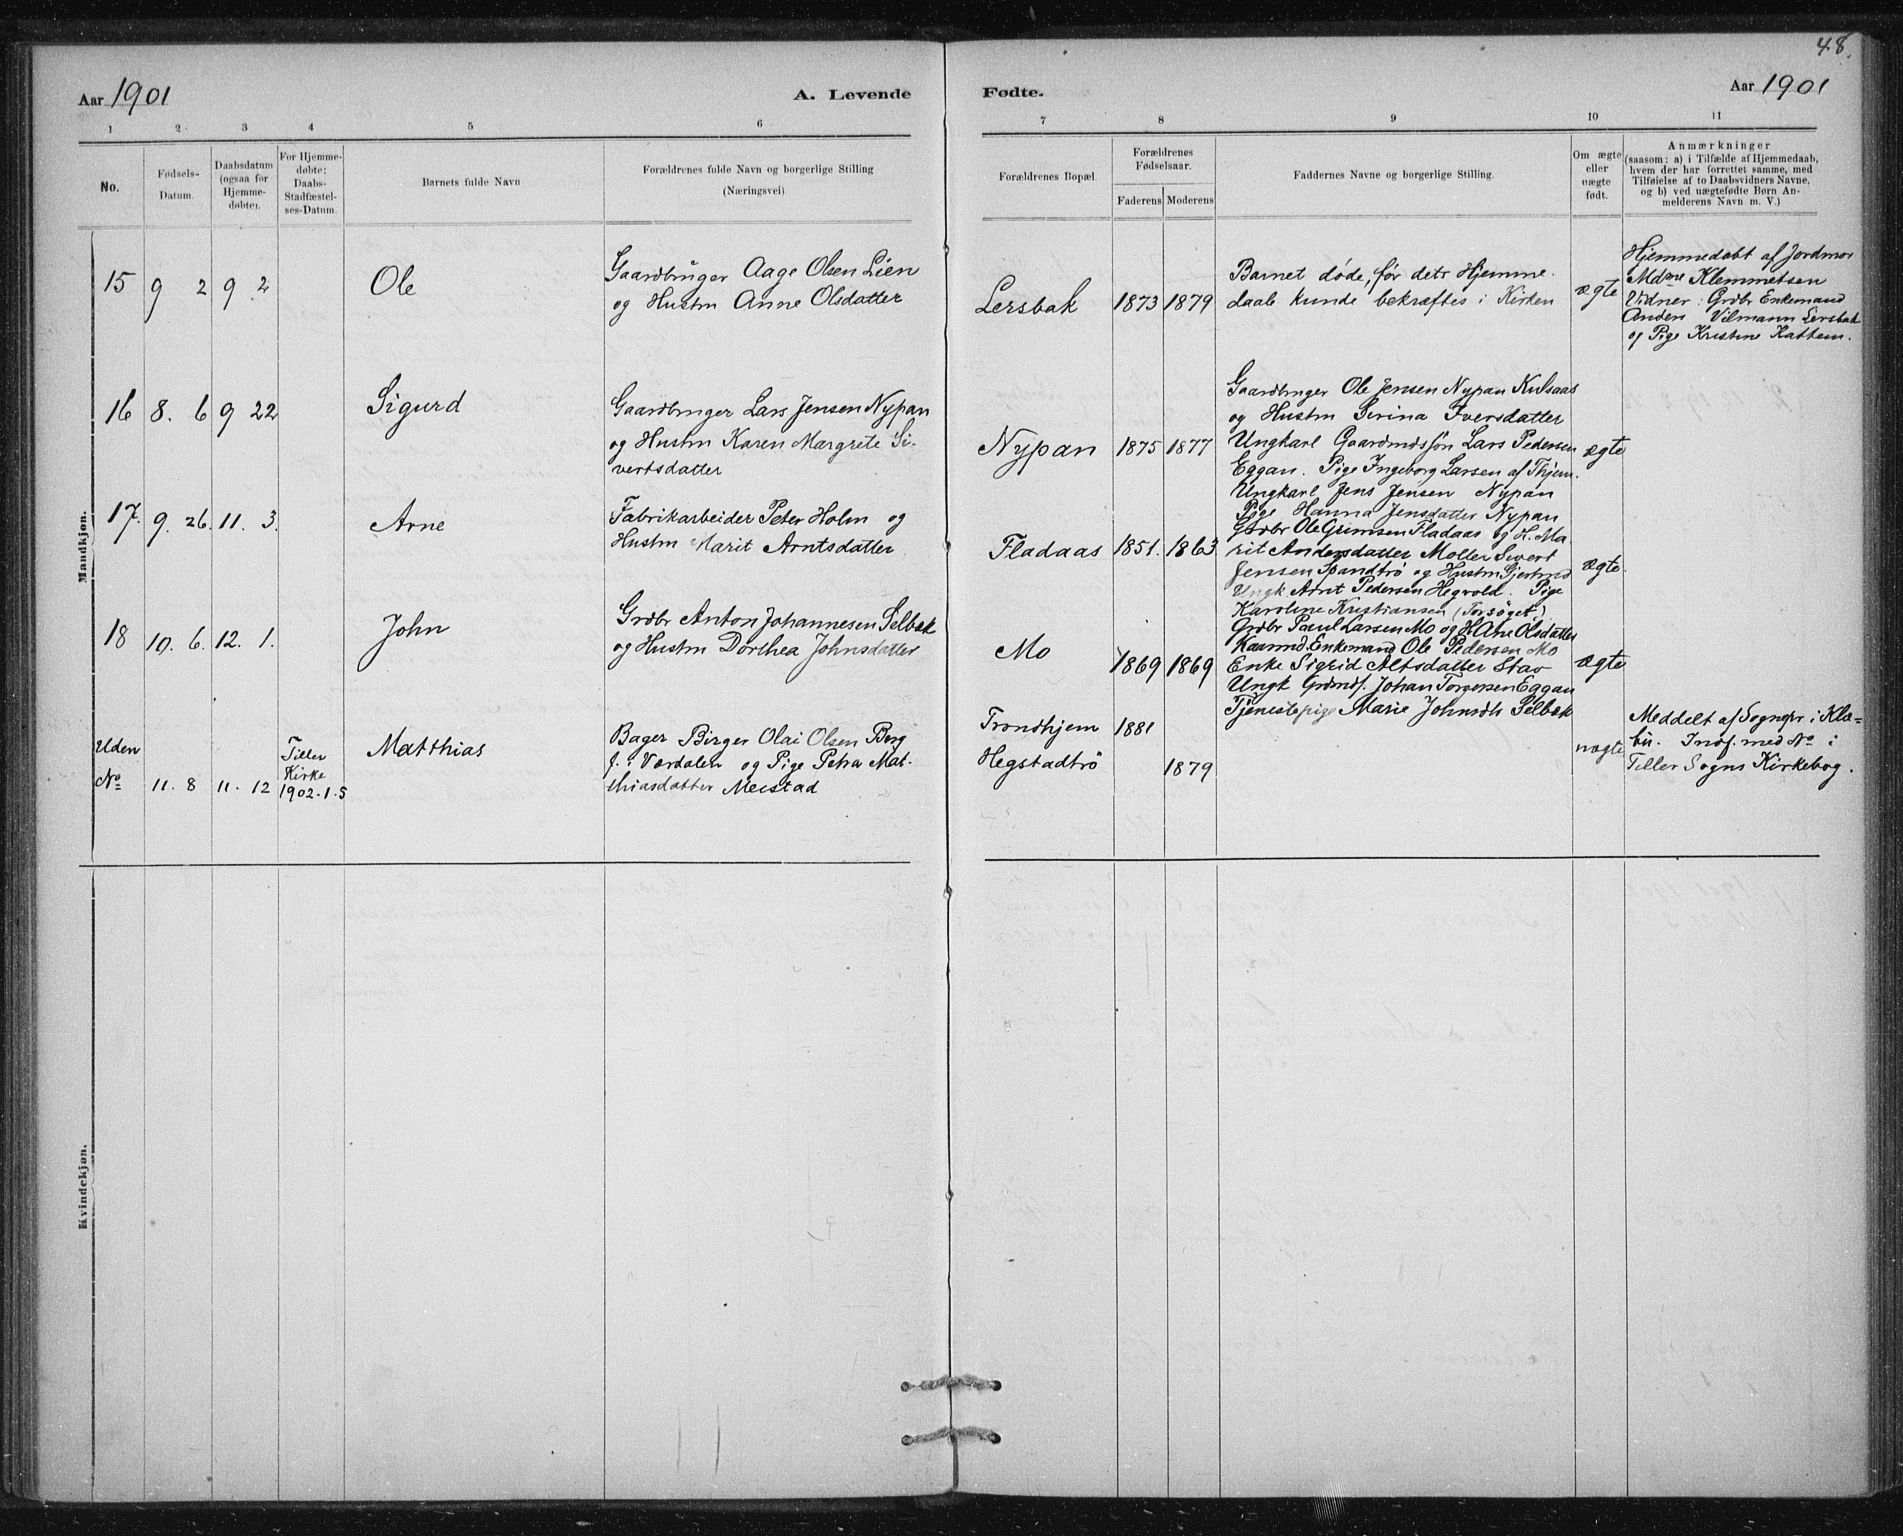 48.
Aar 1901
A. Levende
Fødte.
Aar 1901
1 2 3 4 5 6 7 8 9 10 11
No.
Fødsels-
Datum.
Daabsdatum
(ogsaa for
Hjemme-
døbte).
For Hjemme-
døbte:
Daabs-
Stadfæstel-
ses-Datum.
Barnets fulde Navn
Forældrenes fulde Navn og borgerlige Stilling
(Næringsvei).
Forældrenes Bopæl.
Forældrenes
Fødselsaar.
Faderens Moderens
Faddernes Navne og borgerlige Stilling.
Om ægte
eller
uægte
født.
Anmærkninger
(saasom: a) i Tilfælde af Hjemmedaab,
hvem der har forrettet samme, med
Tilføielse af to Daabsvidners Navne,
og b) ved uægtefødte Børn An-
melderens Navn m. V.)
Mandkjøn.
15
9 2
9 2
Ole
Gaardbruger Aage Olsen Lien
og Hustru Anne Olsdatter
Lersbak
1873
1879
Barnet døde, før dets Hjemme-
daab kunde bekræftes i Kirken
ægte
Hjemmedøbt af Jordmor
Mdme Klemmetsen
Vidner: Grdbr Enkemand
Vilmann Lersbak
og Pige Kristine Kattem.
16
8. 6
9 22
Sigurd
Gaardbruger Lars Jensen Nypan
og Hustru Karen Margrete Si-
vertsdatter
Nypan
1875
1877
Gaardbruger Ole Jensen Nypan Kulsaas
og Hustru Serina Iversdatter
Ungkarl Gaardmdssøn Lars Pedersen
Eggan. Pige Ingeborg Larsen af Thjem.
Ungkarl Jens Jensen Nypan
Pige Hanna Jensdatter Nypan
ægte
17.
9. 26.
11. 3.
Arne
Fabrikarbeider Peter Holm og
Hustru Marit Arntsdatter
Fladaas
1851.
1863
Grdbr Ole Grimsen Fladaas og H. Ma-
rit Andersdatter Møller Sivert
Jensen Spandtrø og Hustru Gjertrud
Ungk Arnt Pedersen Hegvold. Pige
Karoline Kristiansen (Torsøget)
ægte.
18
10. 6.
12. 1.
John
Grdbr Anton Johannesen Selbæk
og Hustru Dorthea Johnsdatter
Mo
1869
1869
Grdbr Paul Larsen Mo og H Ane Olsdatter
Kaarmd. Enkemand Ole Pedersen Mo
Enke Sigrid Altsdatter Stav
Ungk Grdmds. Johan Torgersen Eggan
Tjenestepige Marie Johnsdtr Selbæk
ægte
Uden
No
11. 8
11. 12
Tiller
Kirke
1902. 1. 5
Matthias
Bager Birger Olai Olsen Berg
f. i Værdalen og Pige Petra Mat-
thiasdatter Meistad
Trondhjem
Hegstadtrø
1881
1879
uægte
Meddelt af Sognepr. i Klæ-
bu. Indf. med No i
Tiller Sogns Kirkebog.
Kvindekjøn.